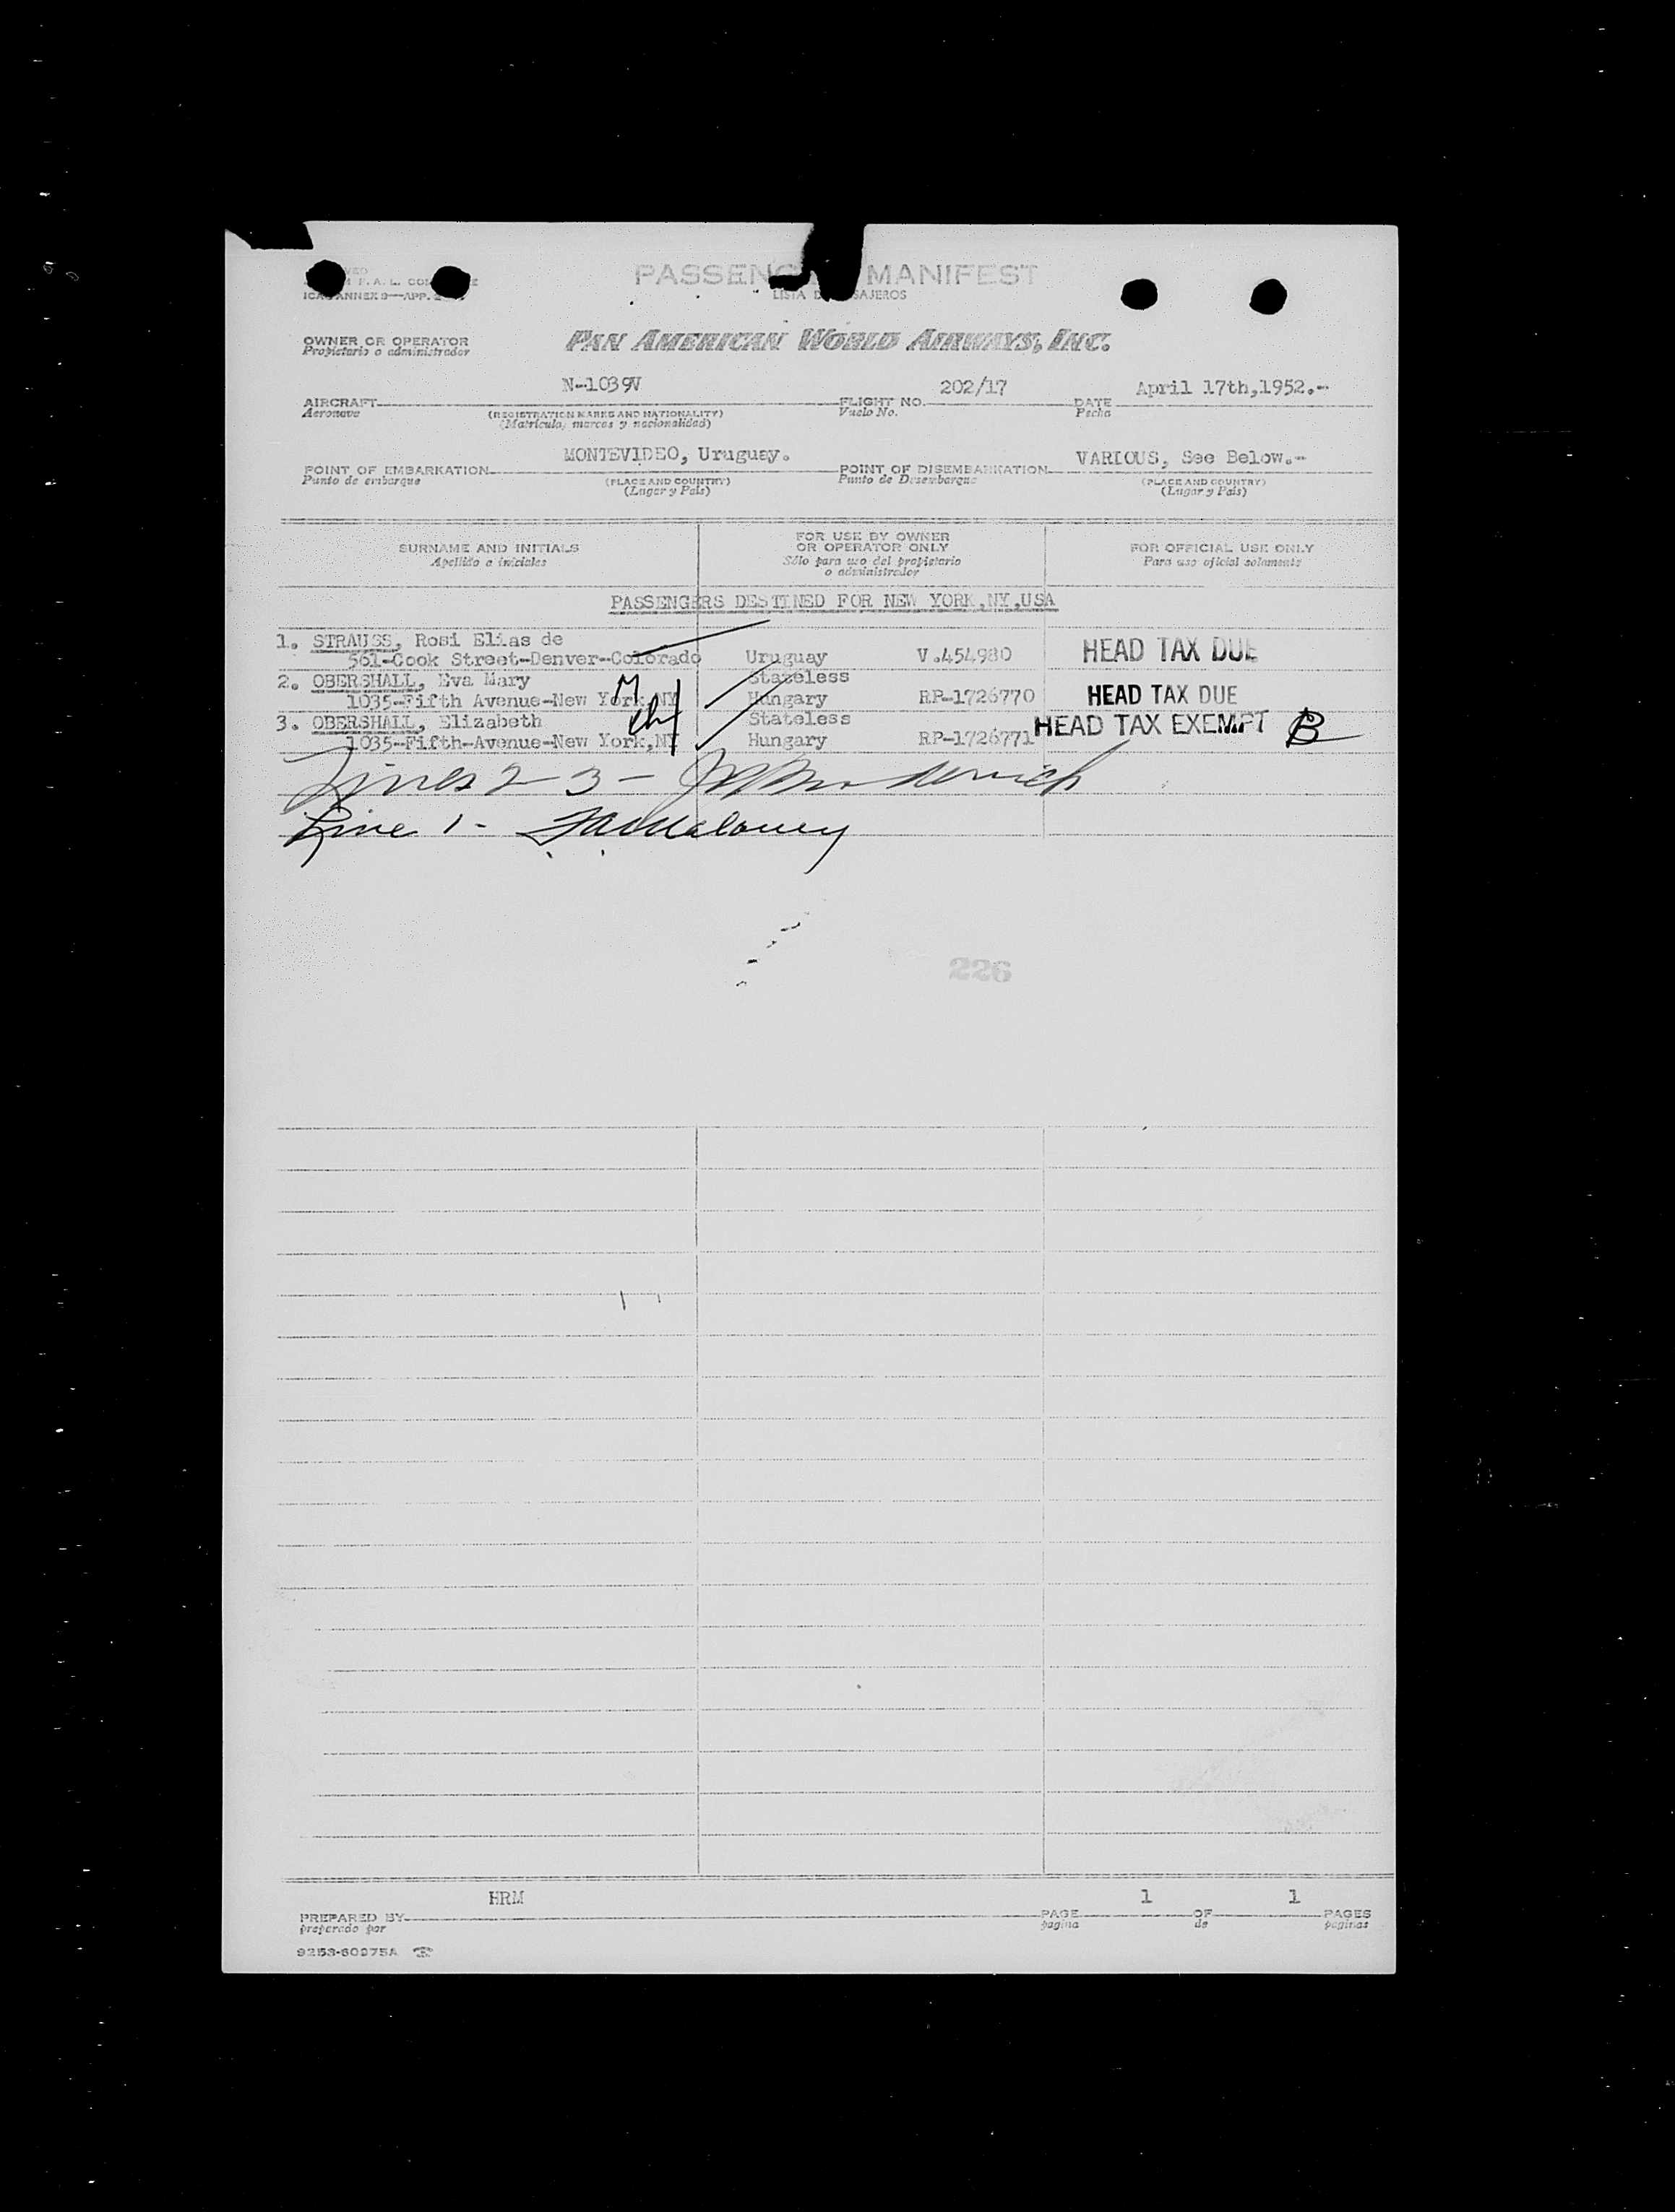 PASSENG MANIFEST
LISTA D SAJEROS
ICA ANNEX 9—APP.
OWNER OR OPERATOR
Propietario o administrador
PAN AMERICAN WORLD AIRWAYS, INC.
N-1039V 202/17 April 17th,1952.-
AIRCRAFT FLIGHT NO. DATE
Aeronave (REGISTRATION MARKS AND NATIONALITY) Vuelo No. Fecha
(Matrícula, marcas y nacionalidad)
MONTEVIDEO, Uruguay. VARIOUS, See Below.-
POINT OF EMBARKATION POINT OF DISEMBARKATION
Punto de embarque (PLACE AND COUNTRY) Punto de Desembarque (PLACE AND COUNTRY)
(Lugar y País) (Lugar y País)
SURNAME AND INITIALS FOR USE BY OWNER OR OPERATOR ONLY FOR OFFICIAL USE ONLY
Apellido e iniciales Sólo para uso del propietario o administrador Para uso oficial solamente
PASSENGERS DESTINED FOR NEW YORK,NY,USA
1. STRAUSS, Rosi Elias de
561-Cook Street-Denver-Colorado Uruguay V.454980 HEAD TAX DUE
2. OBERSHALL, Eva Mary Stateless
1035-Fifth Avenue-New York,NY Hungary RP-1726770 HEAD TAX DUE
3. OBERSHALL, Elizabeth Stateless HEAD TAX EXEMPT B
1035-Fifth-Avenue-New York,NY Hungary RP-1726771
Lines 2 3 -
Line 1 - Maloney
226
HRM 1 1
PREPARED BY PAGE OF PAGES
preparado por pagina de paginas
9253-60975A